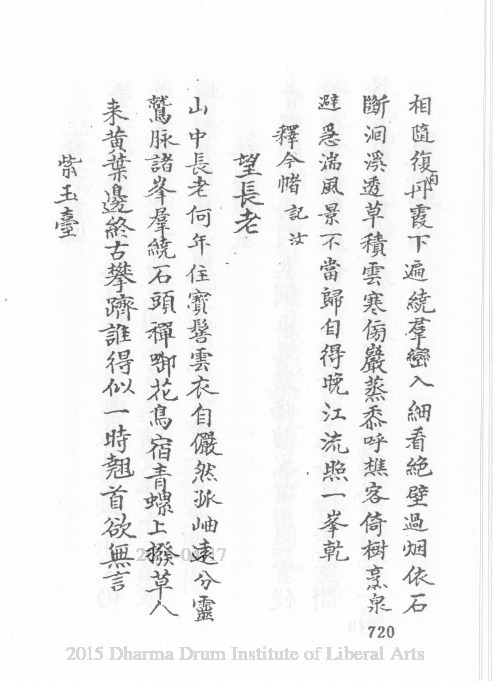 相隨復向丹霞下遍繞羣巒入細看絕壁過烟依石
斷洄溪透草積雲寒傍巖蒸黍呼樵客倚樹烹泉
避惡湍風景不當歸自得晚江流照一峯乾
釋今帾 記汝
望長老
山中長老何年住寶髻雲衣自儼然派岫遠分靈
鷲脉諸峯羣繞石頭禪啣花鳥宿青螺上撥草人
来黄葉邊終古攀躋誰得似一時翹首欲無言
紫玉臺
720
2015 Dharma Drum Institute of Liberal Arts